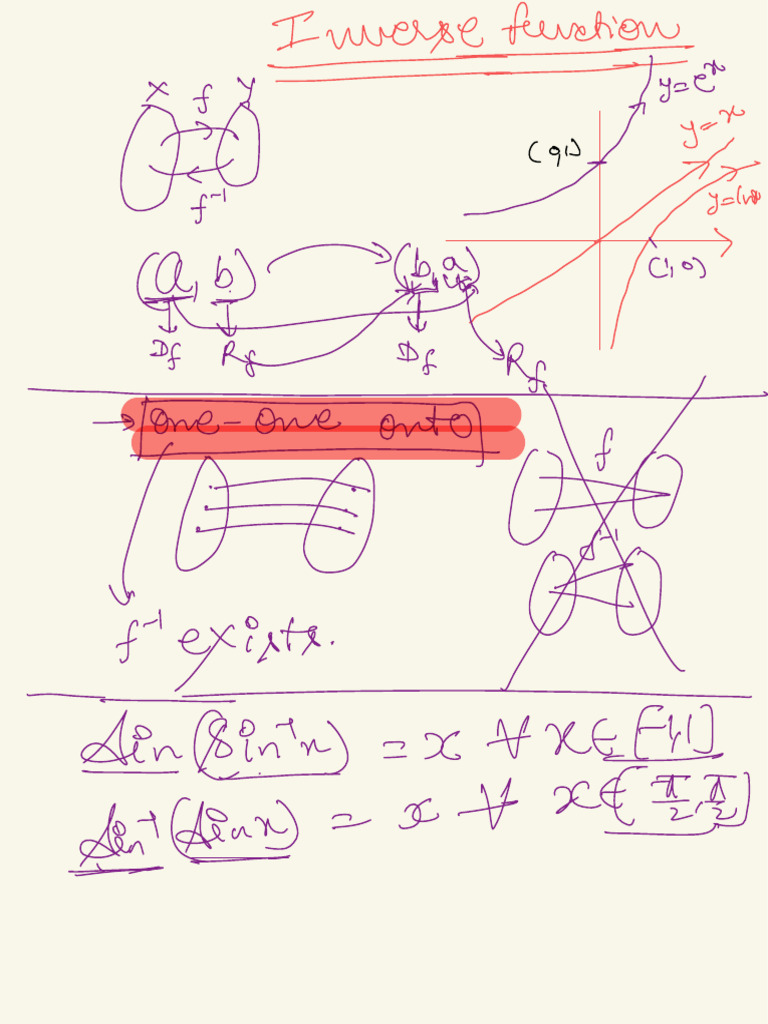 Inverse function
X f Y
f⁻¹
y=eˣ
(0,1)
y=x
y=lnx
(1,0)
(a, b) (b, a)
Df Rf Df Rf
→ one-one onto
f
f⁻¹
f⁻¹ exists.
Sin(Sin⁻¹x) = x ∀ x∈[-1,1]
Sin⁻¹(Sinx) = x ∀ x∈[-π/2,π/2]